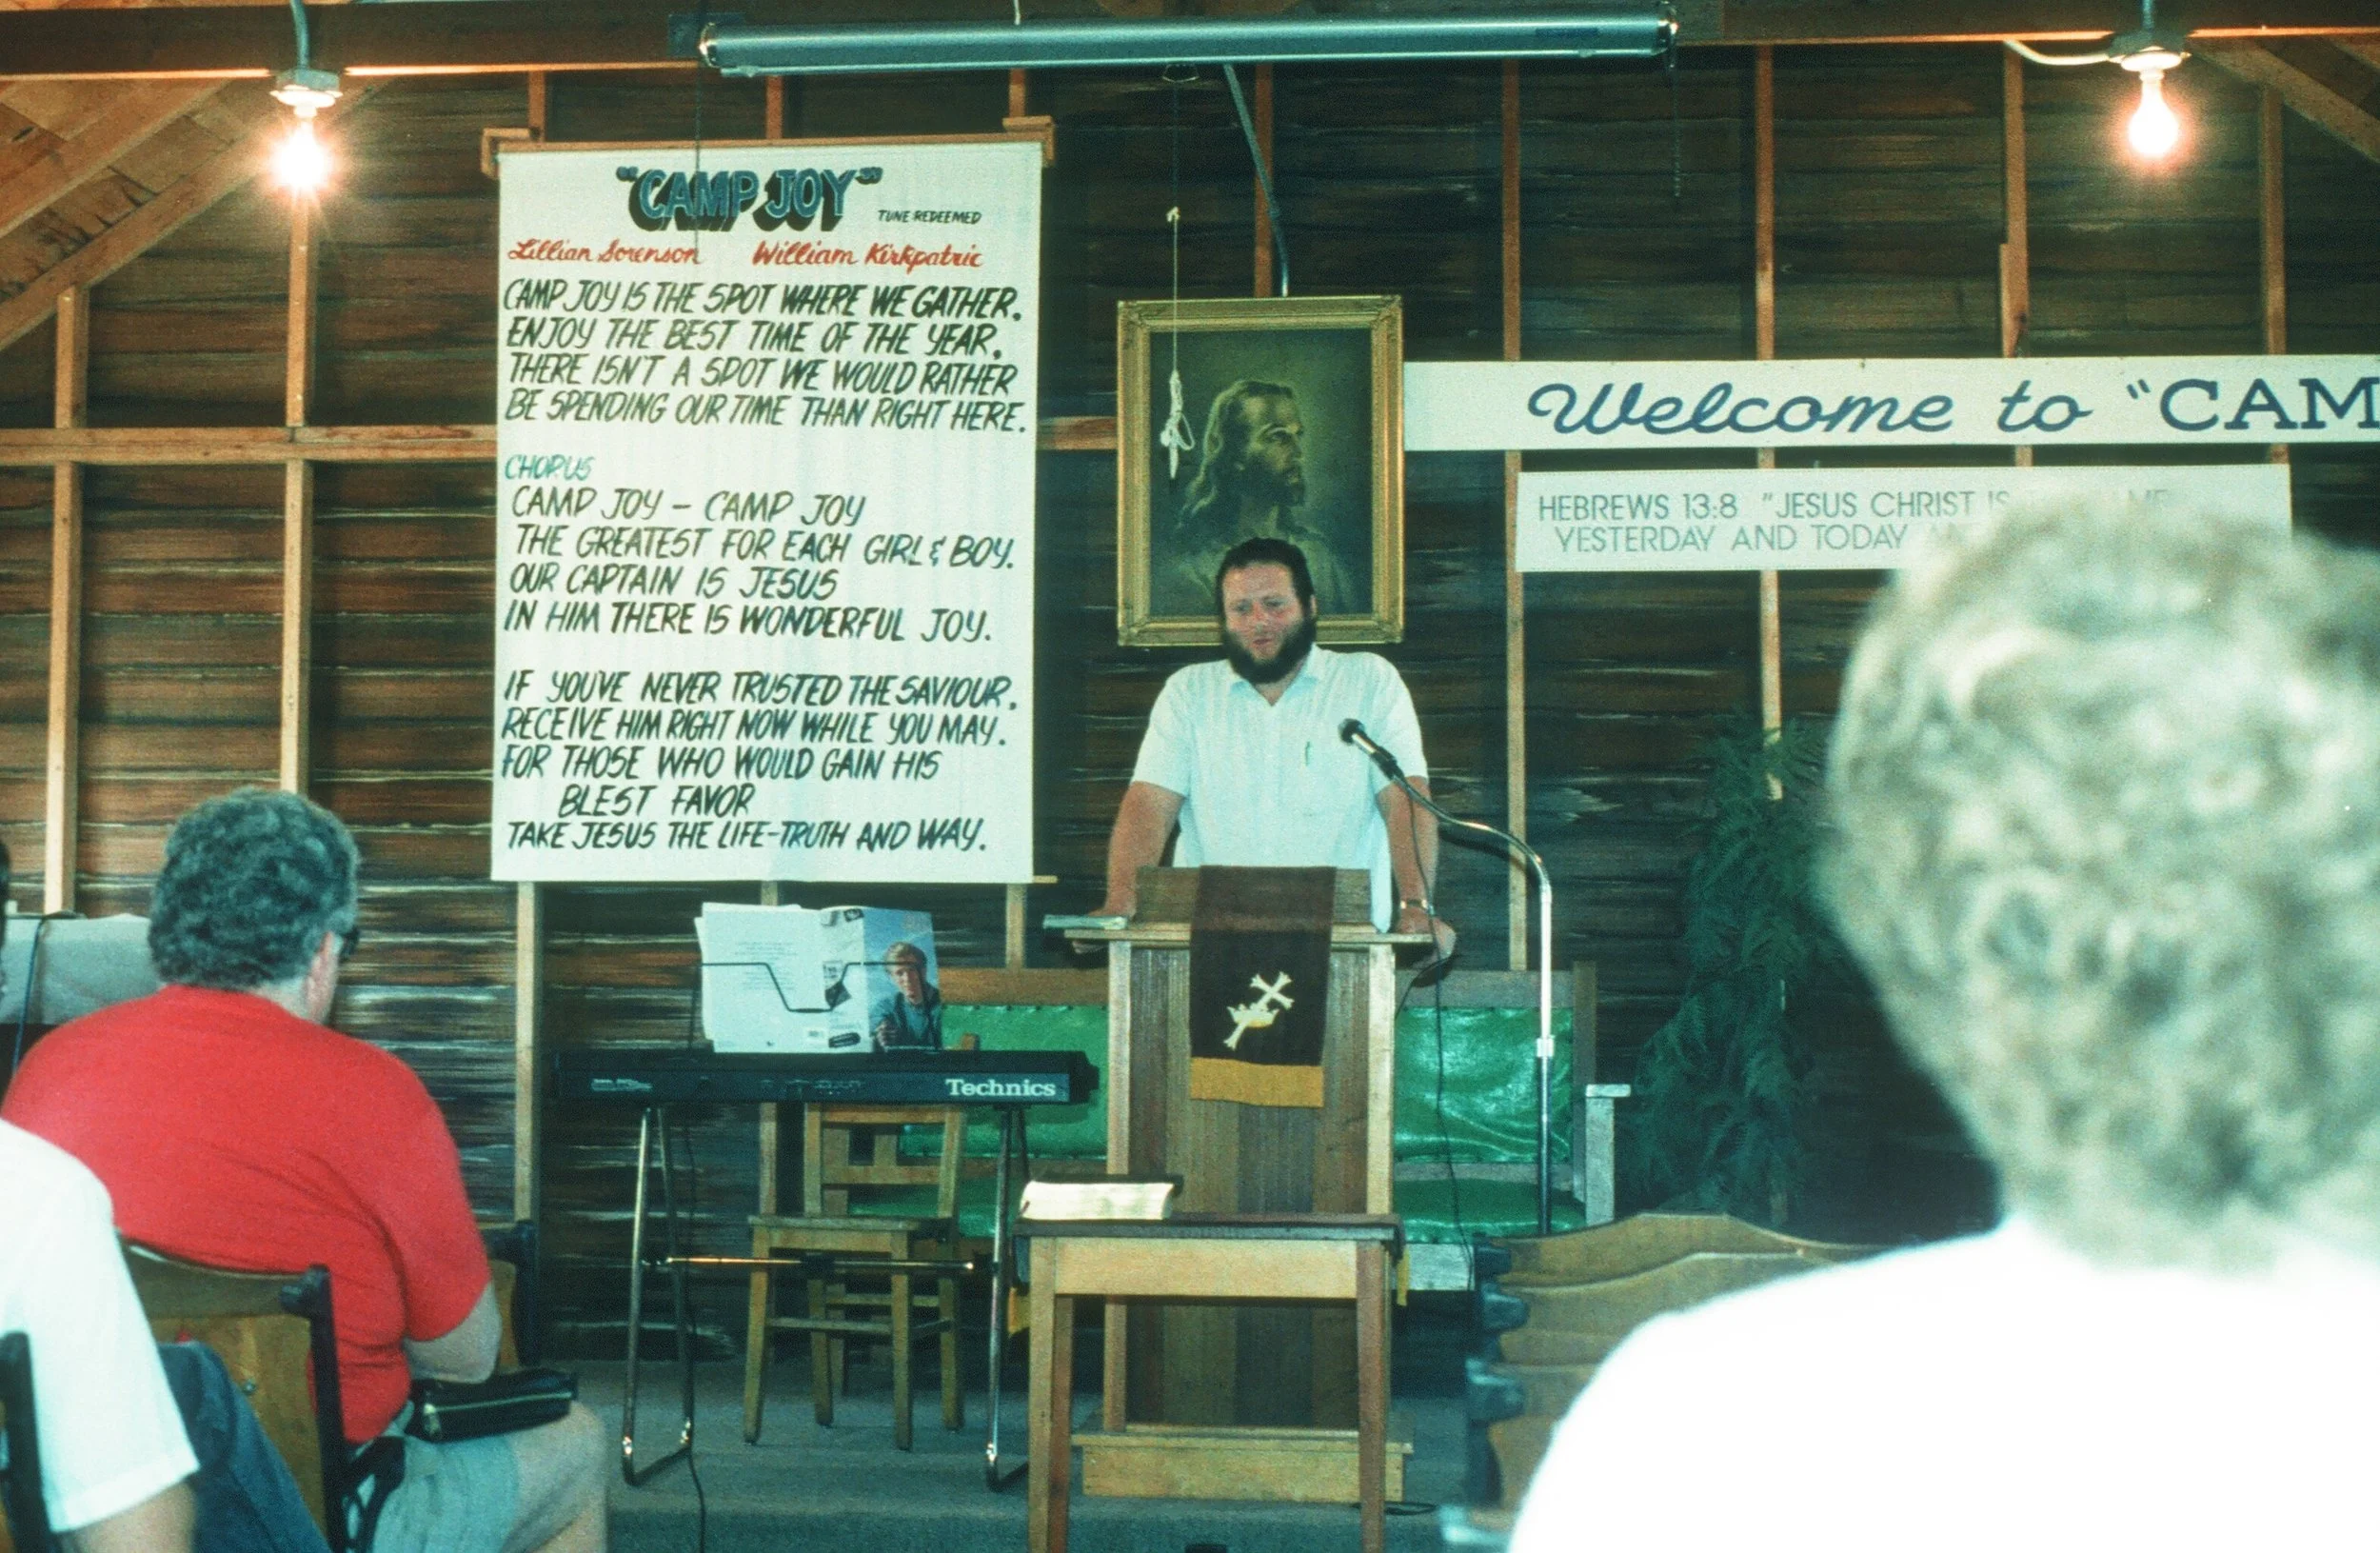 "CAMP JOY"
TUNE: REDEEMED
Lillian Sorenson William Kirkpatric
CAMP JOY IS THE SPOT WHERE WE GATHER.
ENJOY THE BEST TIME OF THE YEAR.
THERE ISN'T A SPOT WE WOULD RATHER
BE SPENDING OUR TIME THAN RIGHT HERE.
CHORUS
CAMP JOY - CAMP JOY
THE GREATEST FOR EACH GIRL & BOY.
OUR CAPTAIN IS JESUS
IN HIM THERE IS WONDERFUL JOY.
IF YOU'VE NEVER TRUSTED THE SAVIOUR.
RECEIVE HIM RIGHT NOW WHILE YOU MAY.
FOR THOSE WHO WOULD GAIN HIS
BLEST FAVOR
TAKE JESUS THE LIFE-TRUTH AND WAY.
Welcome to "CAM
HEBREWS 13:8 "JESUS CHRIST IS
YESTERDAY AND TODAY
Technics